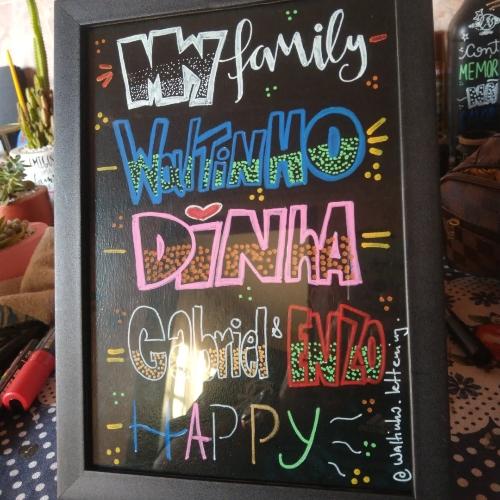 My family
WaltinHO
DiNhA
Gabriel & ENZO
HAPPY
@waltinho.lettering.
MEMOR